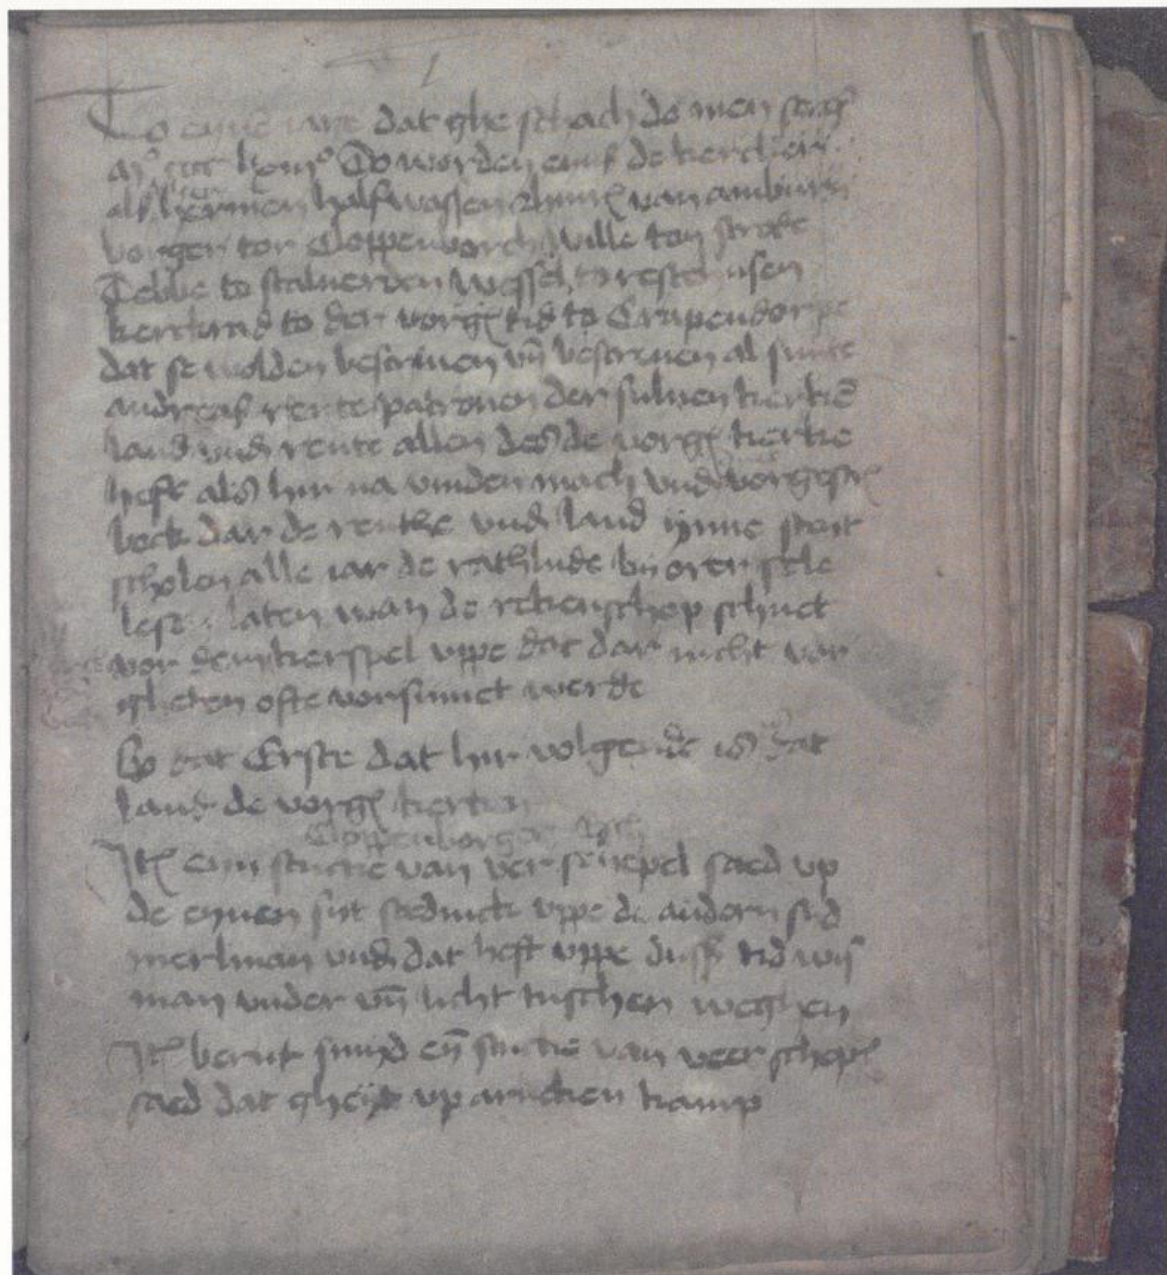 To eyne iare dat ghe schach do men scref
Do worden eins de kercher
als her hermen halfwassen hinr van
borgen tor Cloppenborch wille ton strote
Tebbe to stalverden Wessel to resthusen
kerckrad to der vorg tid to Crapendorpe
dat se wolden bescriven vn bescreven al sunte
andreas rente patronen der sulven kerken
land vnd rente allen des de vorg kerke
heft als hir na vinden mach vnd vorgescr
bock dar de renthe vnd land ynne steit
scholen alle iar de rathlude by oren
lesen laten wan de rekenschop schuet
vor dem kerspel vppe dat dar nicht vor
gheten ofte vorsumet werde
So dat Erste dat hir volgende is dat
land de vorg kerken
Cloppenborger Esch
Jt eyn stucke van ver schepel saed vp
de eynen sijt stedinck vppe de andern sid
merlman vnd dat heft vppe dusse tid
man vnder vn licht tuschen weghen
Jt bernt smyd eyn stucke van veer schepel
saed dat gheyt vp arncken kamp